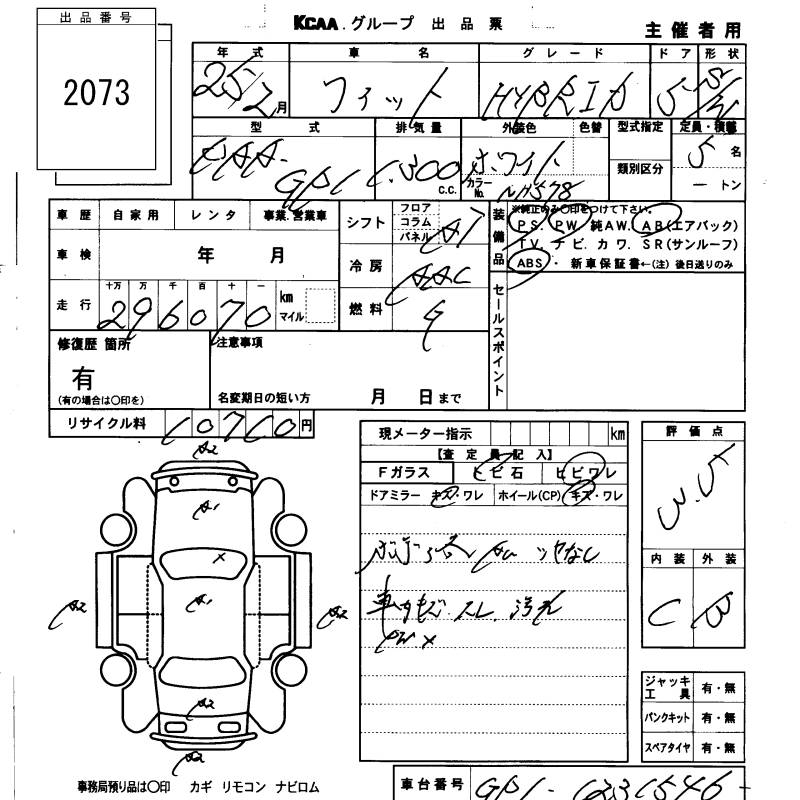 出品番号
2073
KCAA.グループ 出品票
主催者用
年式 車名 グレード ドア 形状
25/2月 フィット HYBRID 5 S/W
型式 排気量 外装色 色替 型式指定 定員・積載
DAA-GP1 1,300c.c. ホワイト 類別区分 5名
カラーNo. NH578 ートン
車歴 自家用 レンタ 事業.営業車
シフト フロア コラム パネル AT
装備品 ※純正のみ〇印をつけて下さい。
PS. PW. 純AW. AB(エアバック)
TV. ナビ. カワ. SR(サンルーフ)
ABS・新車保証書←(注)後日送りのみ
車検 年 月
冷房 AAC
走行 十万 万 千 百 十 一 km マイル
296070
燃料 G
セールスポイント
修復歴 箇所
有
(有の場合は〇印を)
注意事項
名変期日の短い方 月 日まで
リサイクル料 10710円
現メーター指示 km
評価点
3.5
【査定員記入】
Fガラス ヒビ石 ヒビワレ
ドアミラー キズ・ワレ ホイール(CP) キズ・ワレ
ツヤなし
スレ. 汚れ
PW ×
内装 外装
C B
A2
A1
×
A1
A2
A2
A2
A2
ジャッキ工具 有・無
パンクキット 有・無
スペアタイヤ 有・無
事務局預り品は〇印 カギ リモコン ナビロム
車台番号 GP1-1231546